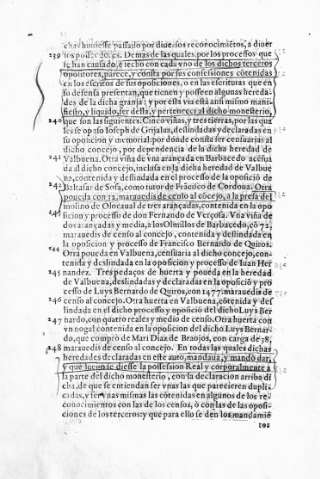 chas huuiesse passado por diuersos reconocimiẽtos, a diuer
239 sos possedores. Demas de las quales por los processos que
se han causado, e fecho con cada vno de los dichos terceros
opositores, parece, y consta por sus confessiones cõtenidas
en los escritos de sus oposiciones, o en las escrituras que en
so defensa presentan, que tienen y posseen algunas hereda-
des de la dicha granja: y por ella via està ansi mismo mani-
fiesto, y liquido, ser della, y pertenecer al dicho monesterio,
240 que son las siguientes. Cinco viñas, y tres tierras, por las que
se opuso Ioseph de Grijalua, deslindadas y declaradas en
su oposicion y memorial: por donde consta ser censuarias al
dicho concejo, por dependencia de la dicha heredad de
241 Valbuena. Otra viña de vna arançada en Barbacedo acensua
da al dicho concejo, inclusa en la dicha heredad de Valbue
na, contenida y deslindada en el processo de la oposiciõ de
242 Baltasar de Sosa, como tutor de Frãcisco de Cordoua. Otra
poueda con 12. marauedis de censo al cõcejo, a la presa del
molino de Oscaual de tres arançadas, contenida en la opo
243 sicion y processo de don Fernando de Verçosa. Vna viña de
dos arançadas y media, a los Olmillos de Barbacedo, cõ 72.
marauedis de censo al concejo, contenida y deslindada en
la oposicion y processo de Francisco Bernardo de Quiros.
244 Otra poueda en Valbuena, censuaria al dicho concejo, con-
tenida y deslindada en la oposicion y processo de Iuan Her
245 nandez. Tres pedaços de huerta y poueda en la heredad
de Valbuena, deslindadas y declaradas en la oposiciõ y pro
cesso de Luys Bernardo de Quiros, con 1477. marauedis de
246 censo al concejo. Otra huerta en Valbuena, cõtenida y des
lindada en el dicho processo y oposicion del dicho Luys Ber
247 nardo, con quatro reales y medio de censo. Otra huerta con
vn nogal contenida en la oposicion del dicho Luys Bernar-
do, que compro de Mari Diaz de Braojos, con carga de 78.
248 marauedis de censo al concejo. En todas las quales dichas
heredades declaradas en este auto, mandaua, y mandò dar,
y que luego se diesse la possession Real y corporalmente a
la parte del dicho monesterio, con la declaracion arriba di
cha, de que se entiendan ser vnas las que parecieren dupli-
cadas, y ser vnas mismas las cõtenidas en algunos de los re-
conocimientos con las de los censos, ò con las de las oposi-
ciones de los terceros: y que para ello se den los mandamiẽ
tos